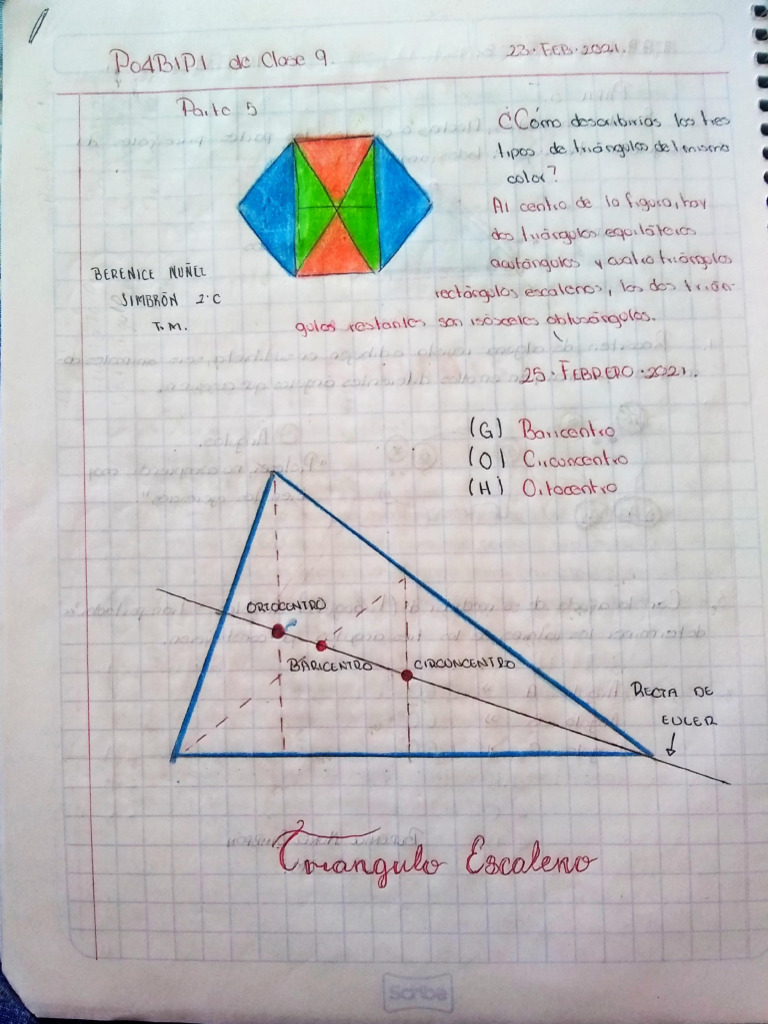 P04B1P1 de Clase 9.
23·FEB·2021.
Parte 5
¿Cómo describirías los tres
tipos de triángulos del mismo
color?
Al centro de la figura, hay
dos triángulos equiláteros
acutángulos y cuatro triángulos
rectángulos escalenos, los dos trián-
gulos restantes son isósceles obtusángulos.
BERENICE NUÑEZ
SIMBRÓN 2·C
T.M.
25·FEBRERO·2021.
(G) Baricentro
(O) Circuncentro
(H) Ortocentro
ORTOCENTRO
BARICENTRO
CIRCUNCENTRO
RECTA DE
EULER
Triangulo Escaleno
Scribe